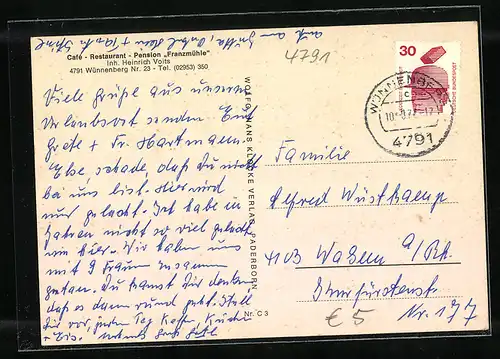 auch an Jutta, Onkel Stein + Tante Stine
Café - Restaurant - Pension „Franzmühle"
Inh. Heinrich Voits
4791 Wünnenberg Nr. 23 - Tel. (02953) 350
4791
30
DEUTSCHE BUNDESPOST
WÜNNENBERG
c
4791
Viele Grüße aus unserem
Urlaubsort senden Euch
Grete + Fr. Hartmann.
Else schade, daß Du nicht
bei uns bist. Hier wird
nur gelacht. Ich habe in
Jahren nicht so viel gelacht
wie hier. Wir haben uns
mit 9 Frauen zusammen
getan. Du kannst Dir denken
daß es dann rund geht. Stell
Dir vor, jeden Tag Kaffee, Kuchen
+ Eis.
WOLFGANG HANS KLOCKE VERLAG, PADERBORN
Nr. C 3
Familie
Alfred Wüstkamp
4103 Walsum a/Rh.
Kurfürstenstr.
Nr. 177
€ 5